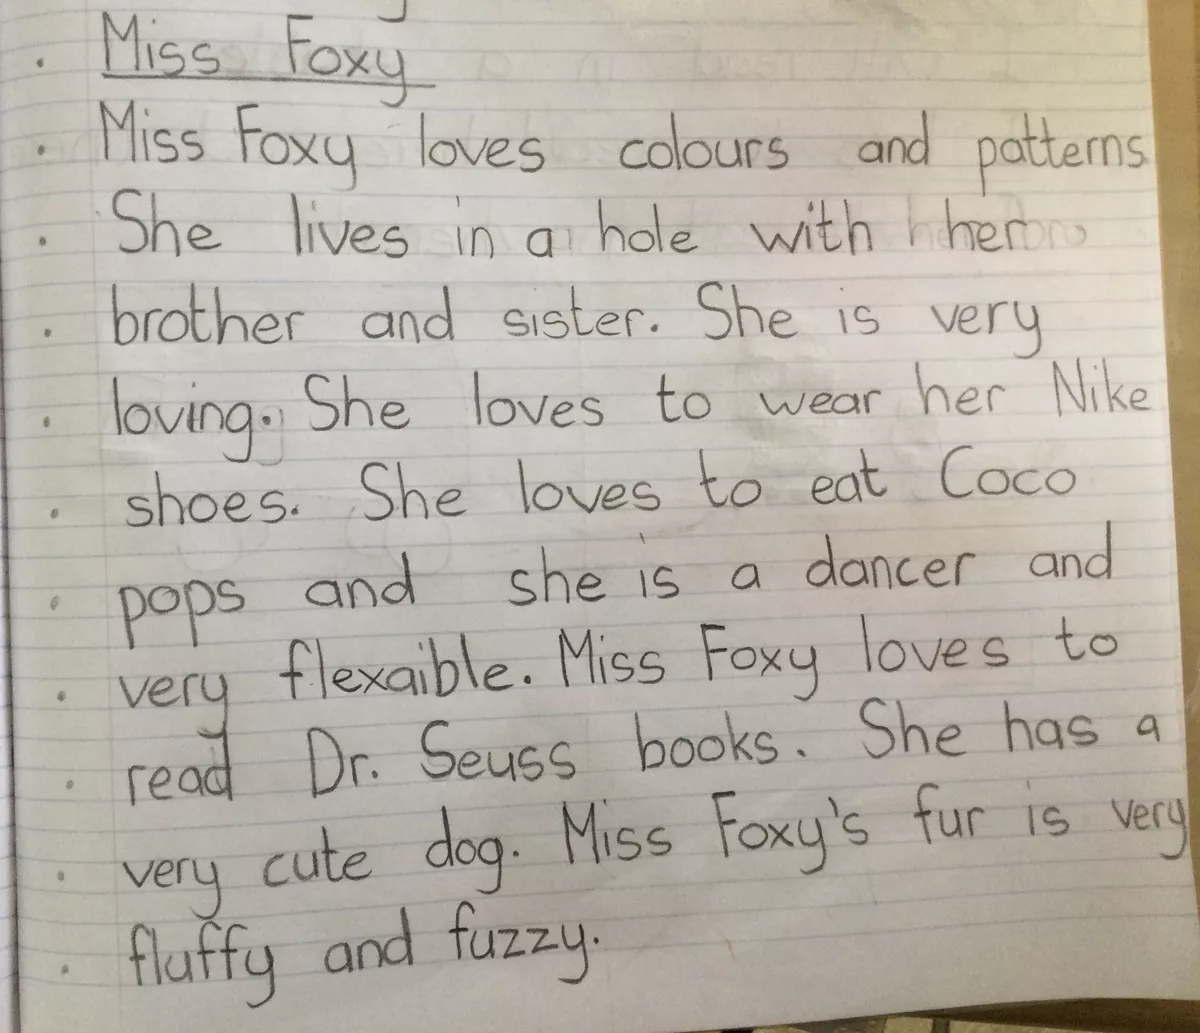 Miss Foxy
Miss Foxy loves colours and patterns
She lives in a hole with her
brother and sister. She is very
loving. She loves to wear her Nike
shoes. She loves to eat Coco
pops and she is a dancer and
very flexaible. Miss Foxy loves to
read Dr. Seuss books. She has a
very cute dog. Miss Foxy's fur is very
fluffy and fuzzy.